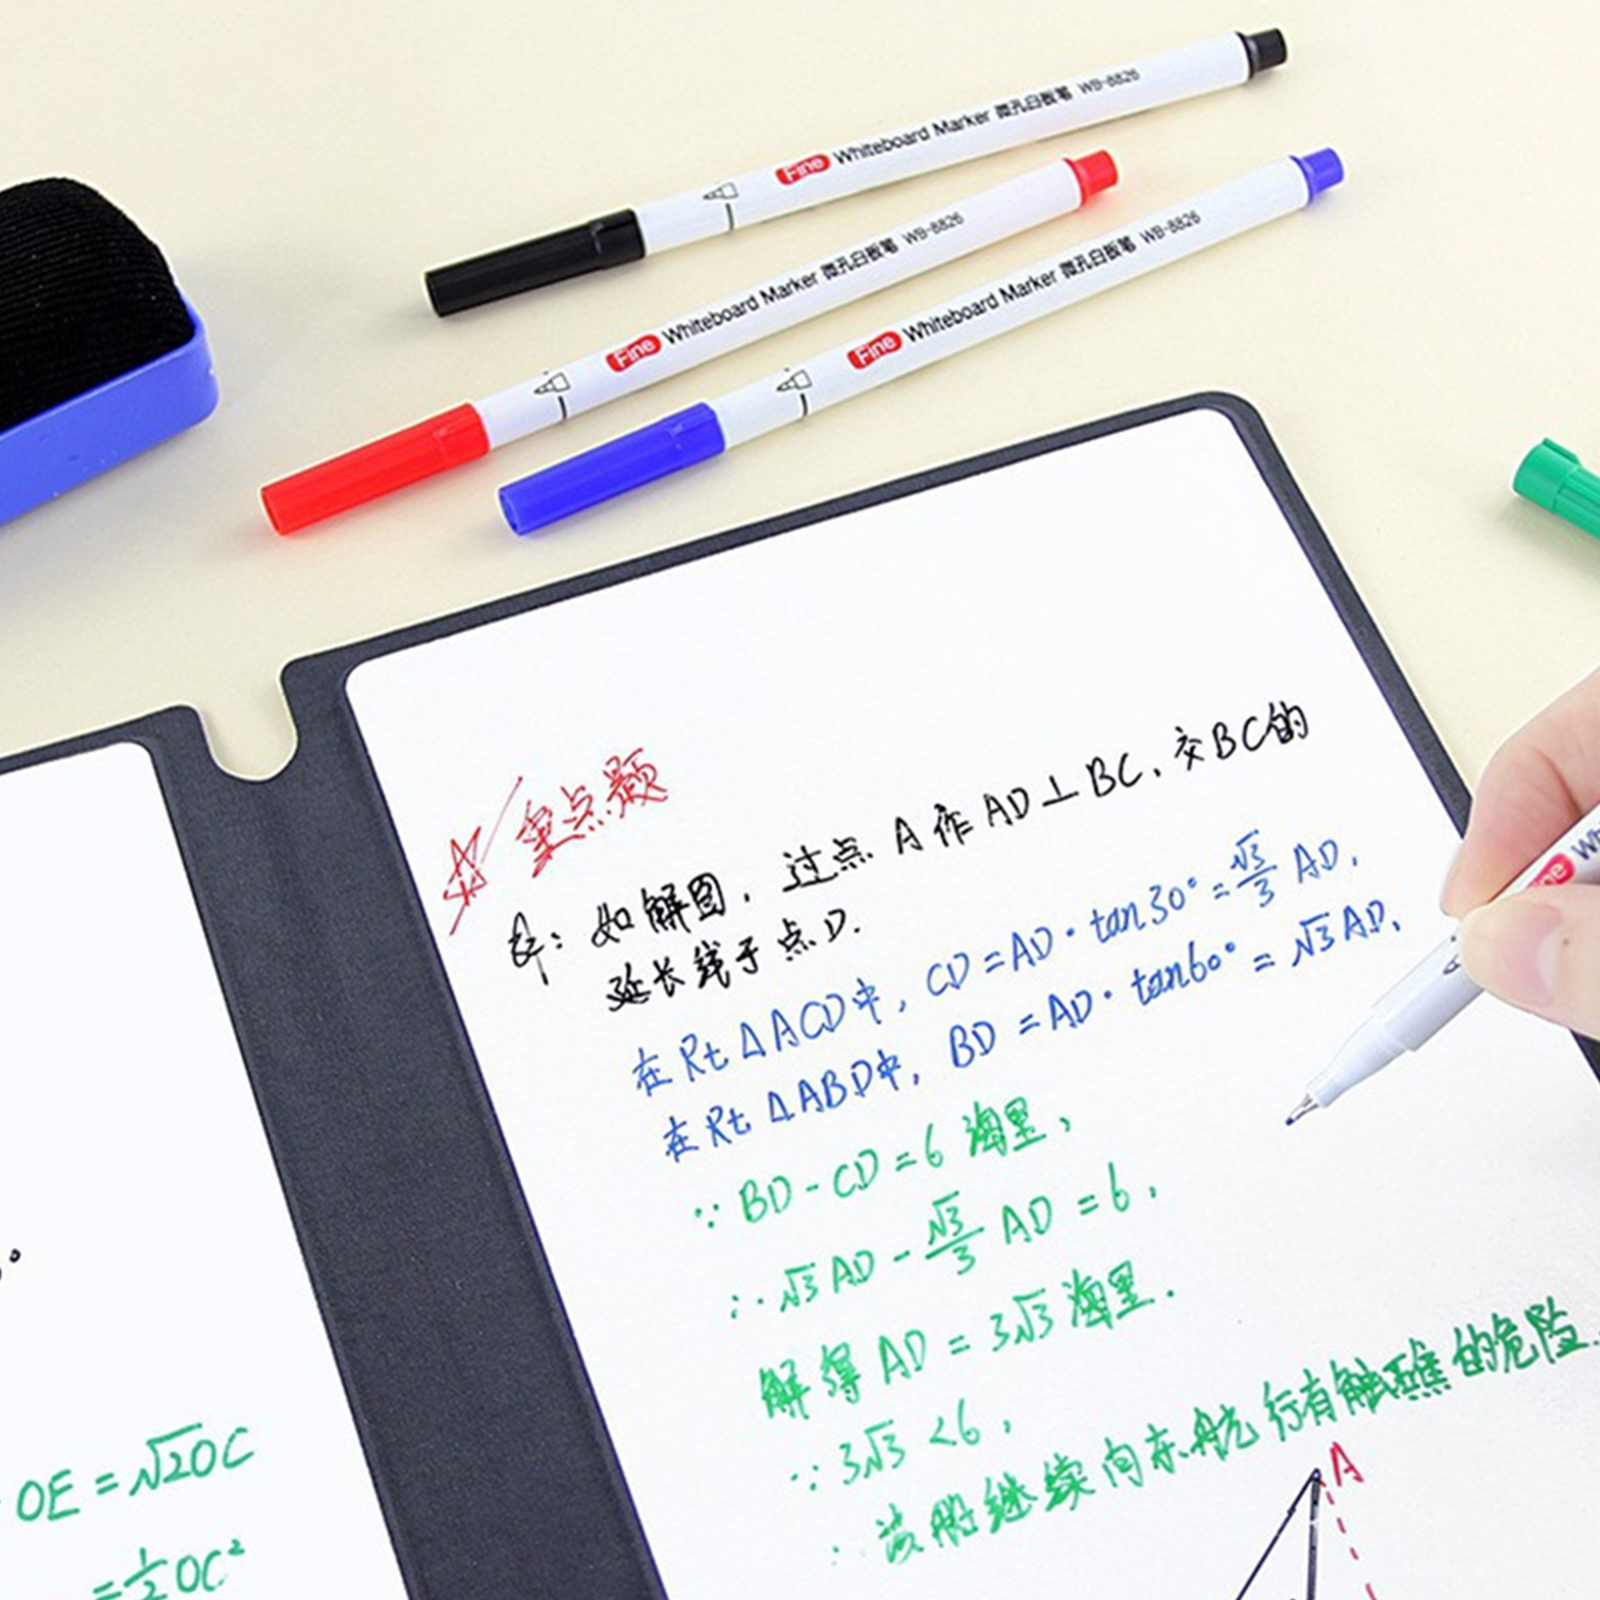 Fine Whiteboard Marker 微孔白板笔 WB-8826
Fine Whiteboard Marker 微孔白板笔 WB-8826
Fine Whiteboard Marker 微孔白板笔 WB-8826
OE = √2OC
= 1/2 OC²
☆ 重点题
解: 如解图, 过点 A 作 AD⊥BC, 交BC的
延长线于点D.
在Rt△ACD中, CD = AD·tan30° = √3/3 AD,
在Rt△ABD中, BD = AD·tan60° = √3AD,
∵ BD - CD = 6 海里,
∴ √3AD - √3/3 AD = 6,
解得 AD = 3√3 海里.
∵ 3√3 < 6,
∴ 该船继续向东航行有触礁的危险.
A